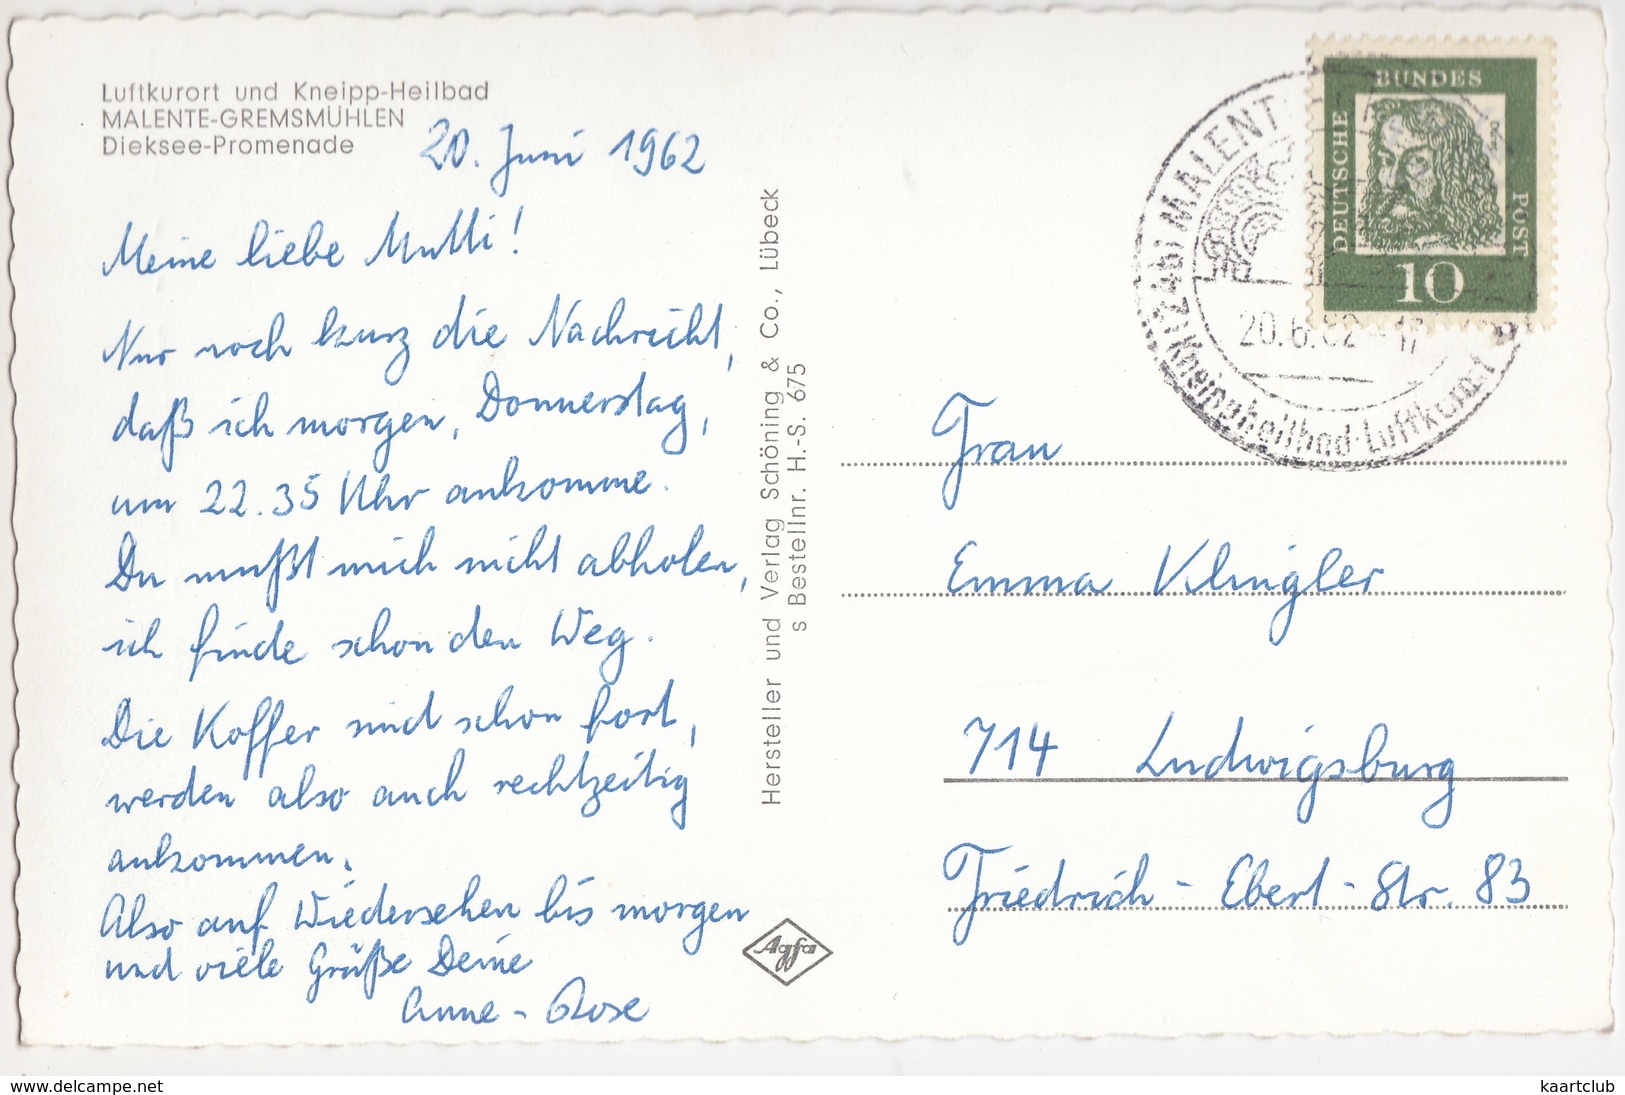 Luftkurort und Kneipp-Heilbad
MALENTE-GREMSMÜHLEN
Dieksee-Promenade
20. Juni 1962
Meine liebe Mutti!
Nur noch kurz die Nachricht,
daß ich morgen, Donnerstag,
um 22.35 Uhr ankomme.
Du mußt mich nicht abholen,
ich finde schon den Weg.
Die Koffer sind schon fort,
werden also auch rechtzeitig
ankommen.
Also auf Wiedersehen bis morgen
und viele Grüße Deine
Anne-Rose
Hersteller und Verlag Schöning & Co., Lübeck
s Bestellnr. H.-S. 675
Agfa
DEUTSCHE
BUNDES
POST
10
(24b) MALENT
20.6.62-17
Kneippheilbad·Luftkurort
Frau
Emma Klingler
714 Ludwigsburg
Friedrich-Ebert-Str. 83
www.delcampe.net
kaartclub